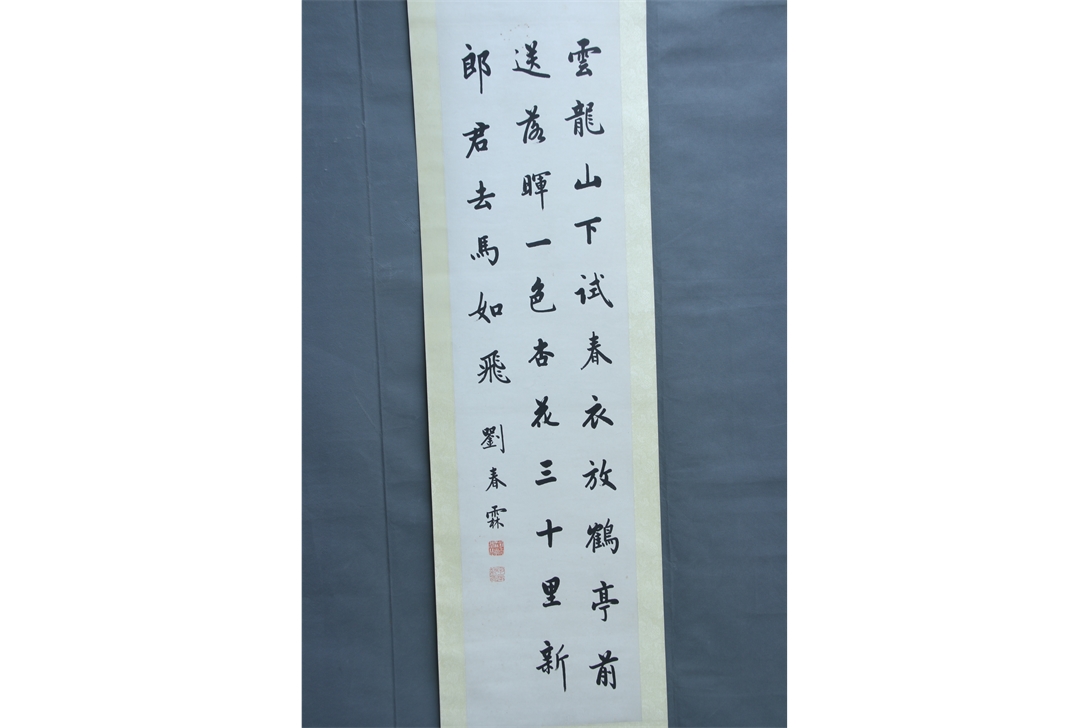 雲龍山下試春衣放鶴亭前
送落暉一色杏花三十里新
郎君去馬如飛
劉春霖